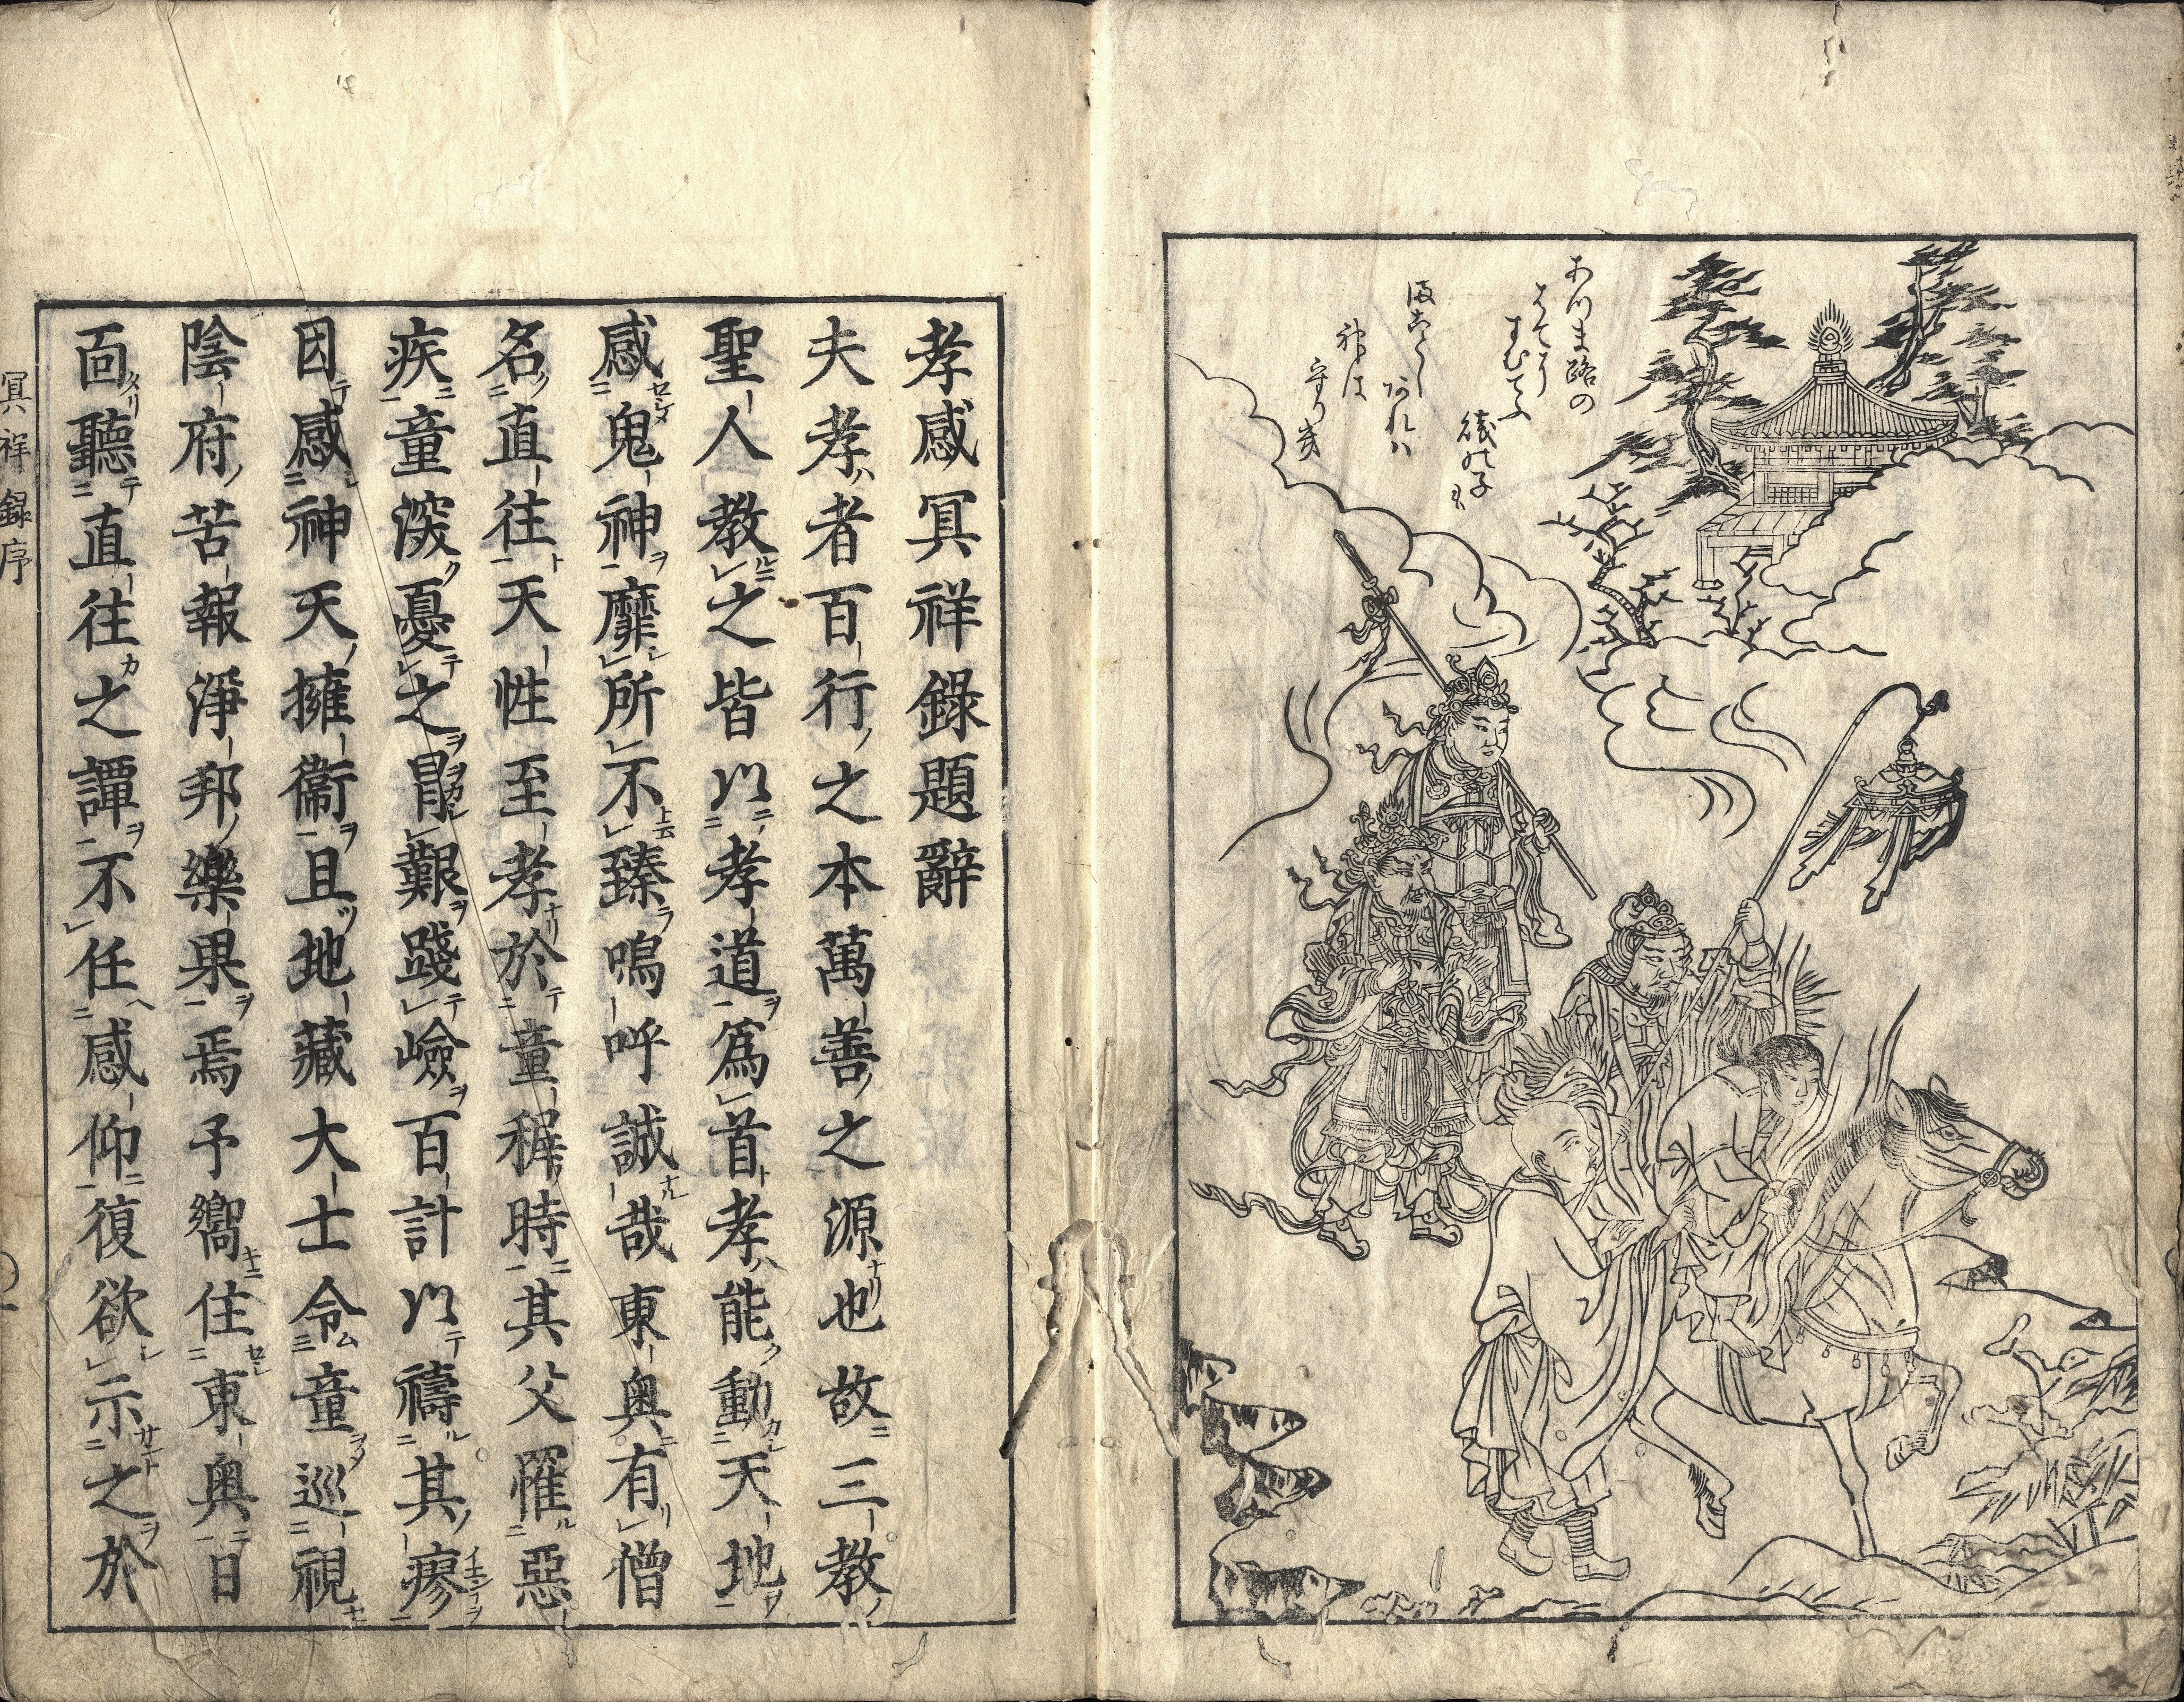 あつま路の
はてに
すむてふ
賤の子も
まことし
あれハ
神は
孝感冥祥錄題辭
夫孝者百行之本萬善之源也故三教
聖人教之皆以孝道爲首孝能動天地
感鬼神靡所不臻嗚呼誠哉東奥有僧
名直往天性至孝於童穉時其父罹惡
疾童深憂之冒艱踐嶮百計以禱其瘳
因感神天擁衞且地藏大士令童巡視
陰府苦報淨邦樂果焉予嚮住東奥日
面聽直往之譚不任感仰復欲示之於
冥祥錄序